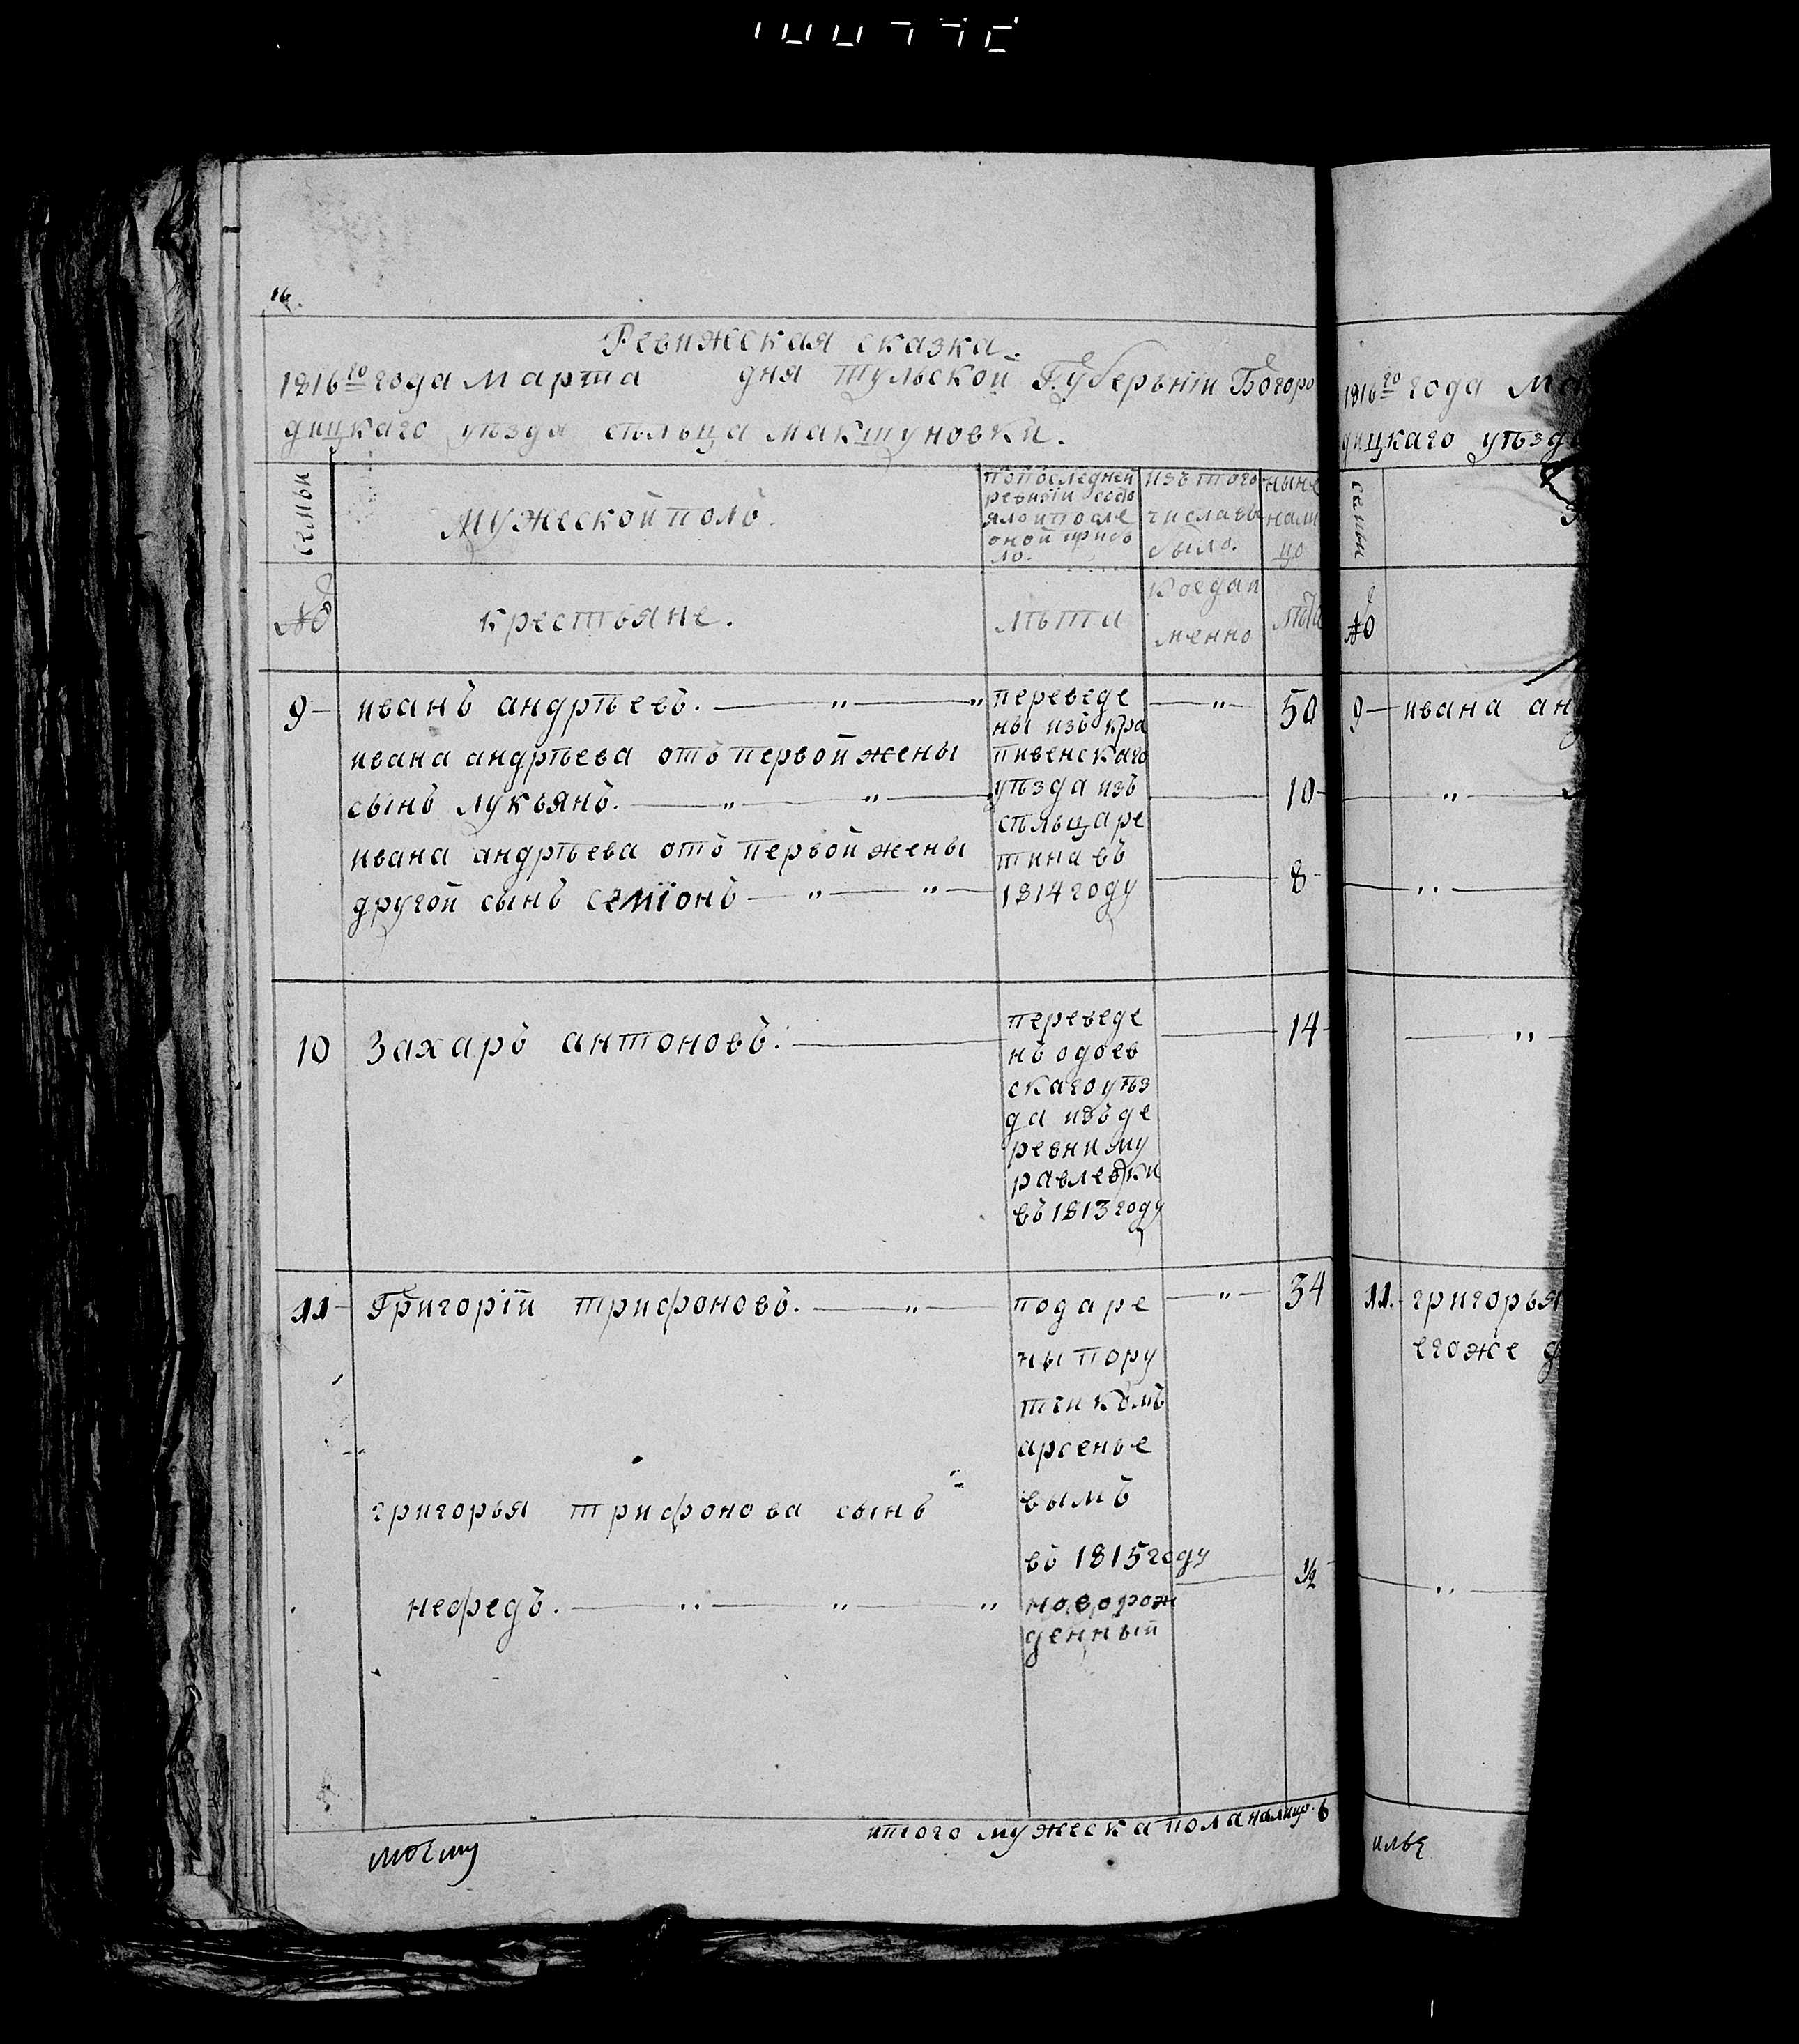 16.
Ревижская сказка.
1816го года марта дня тульской Губерьнїи Богоро
дицкаго уѣзда сѣльца макшуновки.
семьи
мужеской полъ.
попоследней
ревизїи состо
ялоипосле
оной прибы
ло.
изъ того
числавы
было.
ныне
нали
цо
№
крестьяне.
лѣта
Когдаи
менно
лѣта
9
иванъ андрѣевъ.
переведе
ны изъ кра
пивенскаго
уѣзда изъ
сѣльцаре
тинавъ
1814 году
50
ивана андрѣева отъ первой жены
сынъ лукьянъ.
10
ивана андрѣева отъ первой жены
другой сынъ семїонъ
8
10
Захаръ антоновъ.
переведе
нъ одоев
скаго уѣз
да изъ де
ревни му
равлевки
въ 1813 году
14
11
Григорїй трифоновъ.
подаре
ны пору
тчикомъ
арсенье
вымъ
въ 1815 году
34
григорья трифонова сынъ
нефедъ.
новорож
денный
1/2
итого мужеска пола налицо. 6
1816го года Ма
дицкаго уѣзд
семьи
№
9
ивана ан
11.
григорья
егоже